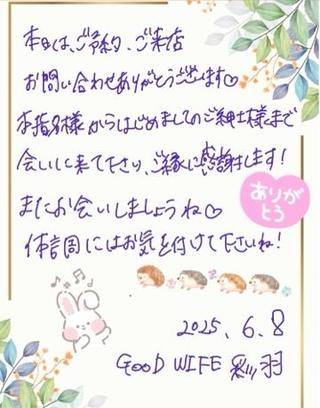 本日は、ご予約、ご来店
お問い合わせありがとうございます♡
本指名様からはじめましてのご紳士様まで
会いに来て下さり、ご縁に感謝します!
またお会いしましょうね♡
ありが
とう
体調にはお気を付けて下さいね!
2025.6.8
GOOD WIFE 彩羽